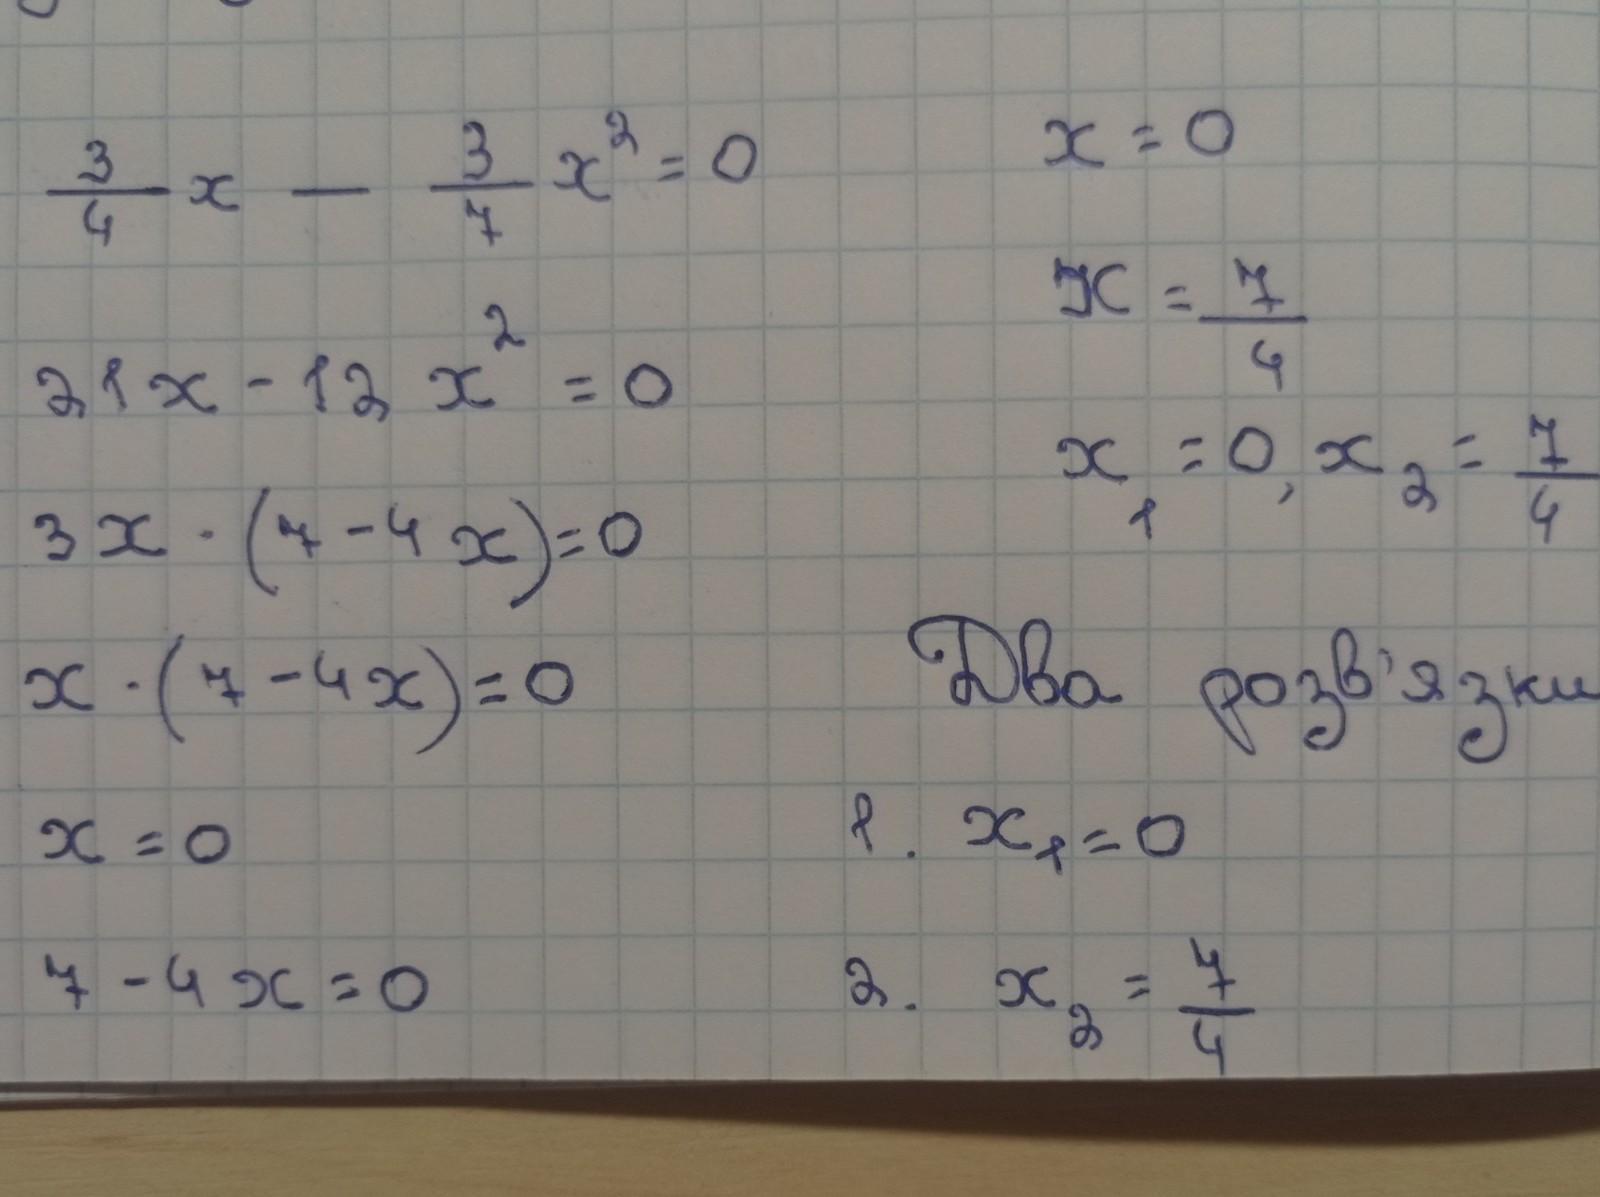 3/4 x - 3/7 x² = 0
21x - 12x² = 0
3x · (7 - 4x) = 0
x · (7 - 4x) = 0
x = 0
7 - 4x = 0
x = 0
x = 7/4
x₁ = 0, x₂ = 7/4
Два розв'язки
1. x₁ = 0
2. x₂ = 7/4